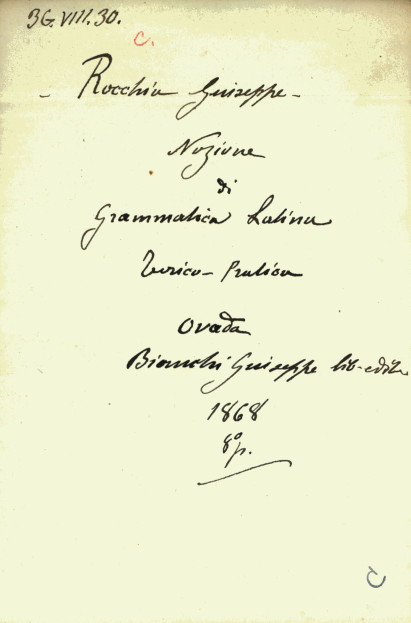 3G.VIII.30.
C.
Rocchia Giuseppe -
Nozione
di
Grammatica Latina
Teorico-Pratica
Ovada
Bianchi Giuseppe lib-edit
1868
8° p.
C